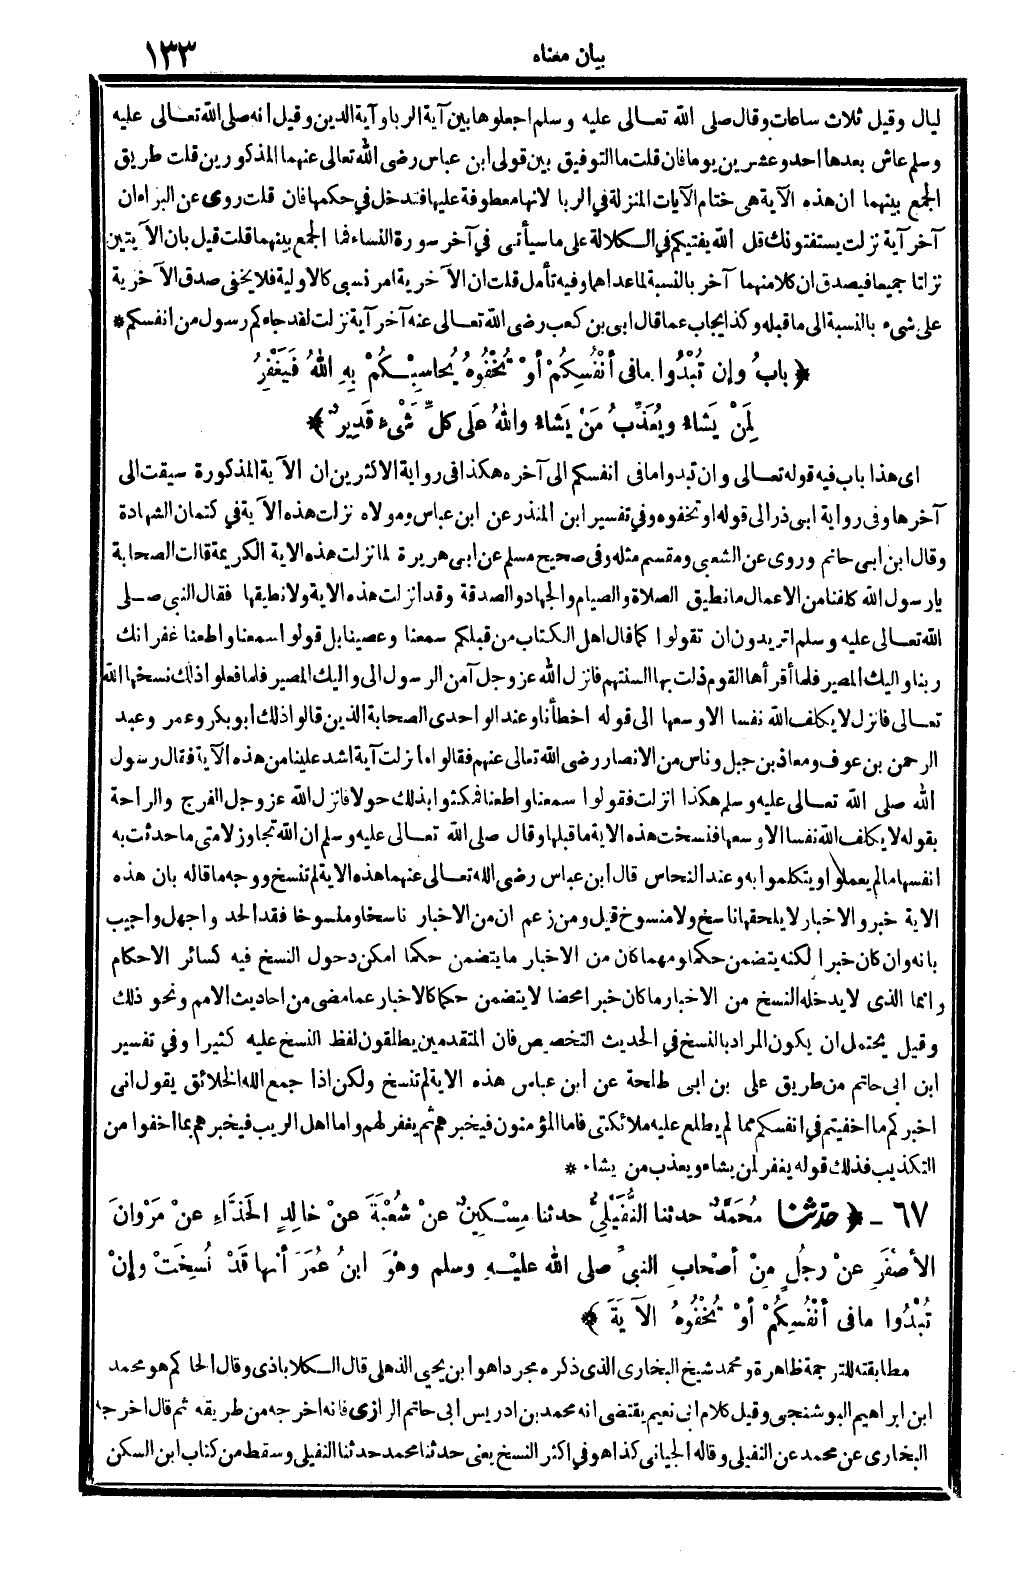 بيان معناه
١٣٣
ليال وقيل ثلاث ساعات وقال صلى الله تعالى عليه وسلم اجعلوها بين آية الربا وآية الدين وقيل انه صلى الله تعالى عليه
وسلم عاش بعدها احد وعشرين يوما فان قلت ما التوفيق بين قولى ابن عباس رضى الله تعالى عنهما المذكورين قلت طريق
الجمع بينهما ان هذه الآية هى ختام الآيات المنزلة في الربا لانها معطوفة عليها فتدخل في حكمها فان قلت روى عن البراء ان
آخر آية نزلت يستفتونك قل الله يفتيكم في الكلالة على ما سيأتى في آخر سورة النساء فما الجمع بينهما قلت قيل بان الآيتين
نزلتا جميعا فيصدق ان كلا منهما آخر بالنسبة لما عداهما وفيه تأمل قلت ان الآخرية امر نسبى كالاولية فلا يخفى صدق الآخرية
على شىء بالنسبة الى ما قبله وكذا يجاب عما قال ابى بن كعب رضى الله تعالى عنه آخر آية نزلت لقد جاءكم رسول من انفسكم *
﴿ بابُ وإن تُبْدُوا مافى أنْفُسِكُمْ أوْ تُخْفُوهُ يُحاسِبْكُمْ بِهِ اللهُ فَيَغْفِرُ
لِمَنْ يَشاءُ ويُعَذِّبُ مَنْ يَشاءُ واللهُ عَلَى كلِّ شَىْءٍ قَدِيرٌ ﴾
اى هذا باب فيه قوله تعالى وان تبدوا مافى انفسكم الى آخره هكذا فى رواية الاكثرين ان الآية المذكورة سيقت الى
آخرها وفى رواية ابى ذر الى قوله او تخفوه وفي تفسير ابن المنذر عن ابن عباس ومولاه نزلت هذه الآية في كتمان الشهادة
وقال ابن ابى حاتم وروى عن الشعبى ومقسم مثله وفى صحيح مسلم عن ابى هريرة لما نزلت هذه الاية الكريمة قالت الصحابة
يا رسول الله كلفنا من الاعمال ما نطيق الصلاة والصيام والجهاد والصدقة وقد انزلت هذه الاية ولا نطيقها فقال النبى صلى
الله تعالى عليه وسلم اتريدون ان تقولوا كما قال اهل الكتاب من قبلكم سمعنا وعصينا بل قولوا سمعنا واطعنا غفرانك
ربنا واليك المصير فلما أقرأها القوم ذلت بها السنتهم فانزل الله عز وجل آمن الرسول الى واليك المصير فلما فعلوا ذلك نسخها الله
تعالى فانزل لا يكلف الله نفسا الا وسعها الى قوله اخطأنا وعند الواحدى الصحابة الذين قالوا ذلك ابو بكر وعمر وعبد
الرحمن بن عوف ومعاذ بن جبل وناس من الانصار رضى الله تعالى عنهم فقالوا ما نزلت آية اشد علينا من هذه الآية فقال رسول
الله صلى الله تعالى عليه وسلم هكذا انزلت فقولوا سمعنا واطعنا فمكثوا بذلك حولا فانزل الله عز وجل الفرج والراحة
بقوله لا يكلف الله نفسا الا وسعها فنسخت هذه الاية ما قبلها وقال صلى الله تعالى عليه وسلم ان الله تجاوز لامتى ما حدثت به
انفسها مالم يعملوا او يتكلموا به وعند النحاس قال ابن عباس رضى الله تعالى عنهما هذه الاية لم تنسخ ووجه ما قاله بان هذه
الاية خبر والاخبار لا يلحقها ناسخ ولا منسوخ قيل ومن زعم ان من الاخبار ناسخا ومنسوخا فقد الحد واجهل واجيب
بانه وان كان خبرا لكنه يتضمن حكما ومهما كان من الاخبار ما يتضمن حكما امكن دخول النسخ فيه كسائر الاحكام
وانما الذى لا يدخله النسخ من الاخبار ما كان خبرا محضا لا يتضمن حكما كالاخبار عما مضى من احاديث الامم ونحو ذلك
وقيل يحتمل ان يكون المراد بالنسخ في الحديث التخصيص فان المتقدمين يطلقون لفظ النسخ عليه كثيرا وفي تفسير
ابن ابى حاتم من طريق على بن ابى طلحة عن ابن عباس هذه الاية لم تنسخ ولكن اذا جمع الله الخلائق يقول انى
اخبركم ما اخفيتم في انفسكم مما لم يطلع عليه ملائكتى فاما المؤمنون فيخبرهم ثم يغفر لهم واما اهل الريب فيخبرهم بما اخفوا من
التكذيب فذلك قوله يغفر لمن يشاء ويعذب من يشاء *
٦٧ - ﴿ حدثنا مُحَمَّدٌ حدثنا النُّفَيْلِىُّ حدثنا مِسْكِينٌ عنْ شُعْبَةَ عنْ خالِدٍ الحَذَّاءِ عنْ مَرْوانَ
الأصْفَرِ عنْ رجُلٍ مِنْ أصْحابِ النبىِّ صلى الله عليْهِ وسلم وهْوَ ابنُ عُمَرَ أنها قَدْ نُسِخَتْ وإنْ
تُبْدُوا مافى أنْفُسِكُمْ أوْ تُخْفُوهُ الآيَةَ ﴾
مطابقته للترجمة ظاهرة ومحمد شيخ البخارى الذى ذكره مجردا هو ابن يحيى الذهلى قال الكلاباذى وقال الحاكم هو محمد
ابن ابراهيم البوشنجى وقيل كلام ابى نعيم يقتضى انه محمد بن ادريس ابى حاتم الرازى فانه اخرجه من طريقه ثم قال اخرجه
البخارى عن محمد عن النفيلى وقاله الجيانى كذا هو في اكثر النسخ يعنى حدثنا محمد حدثنا النفيلى وسقط من كتاب ابن السكن